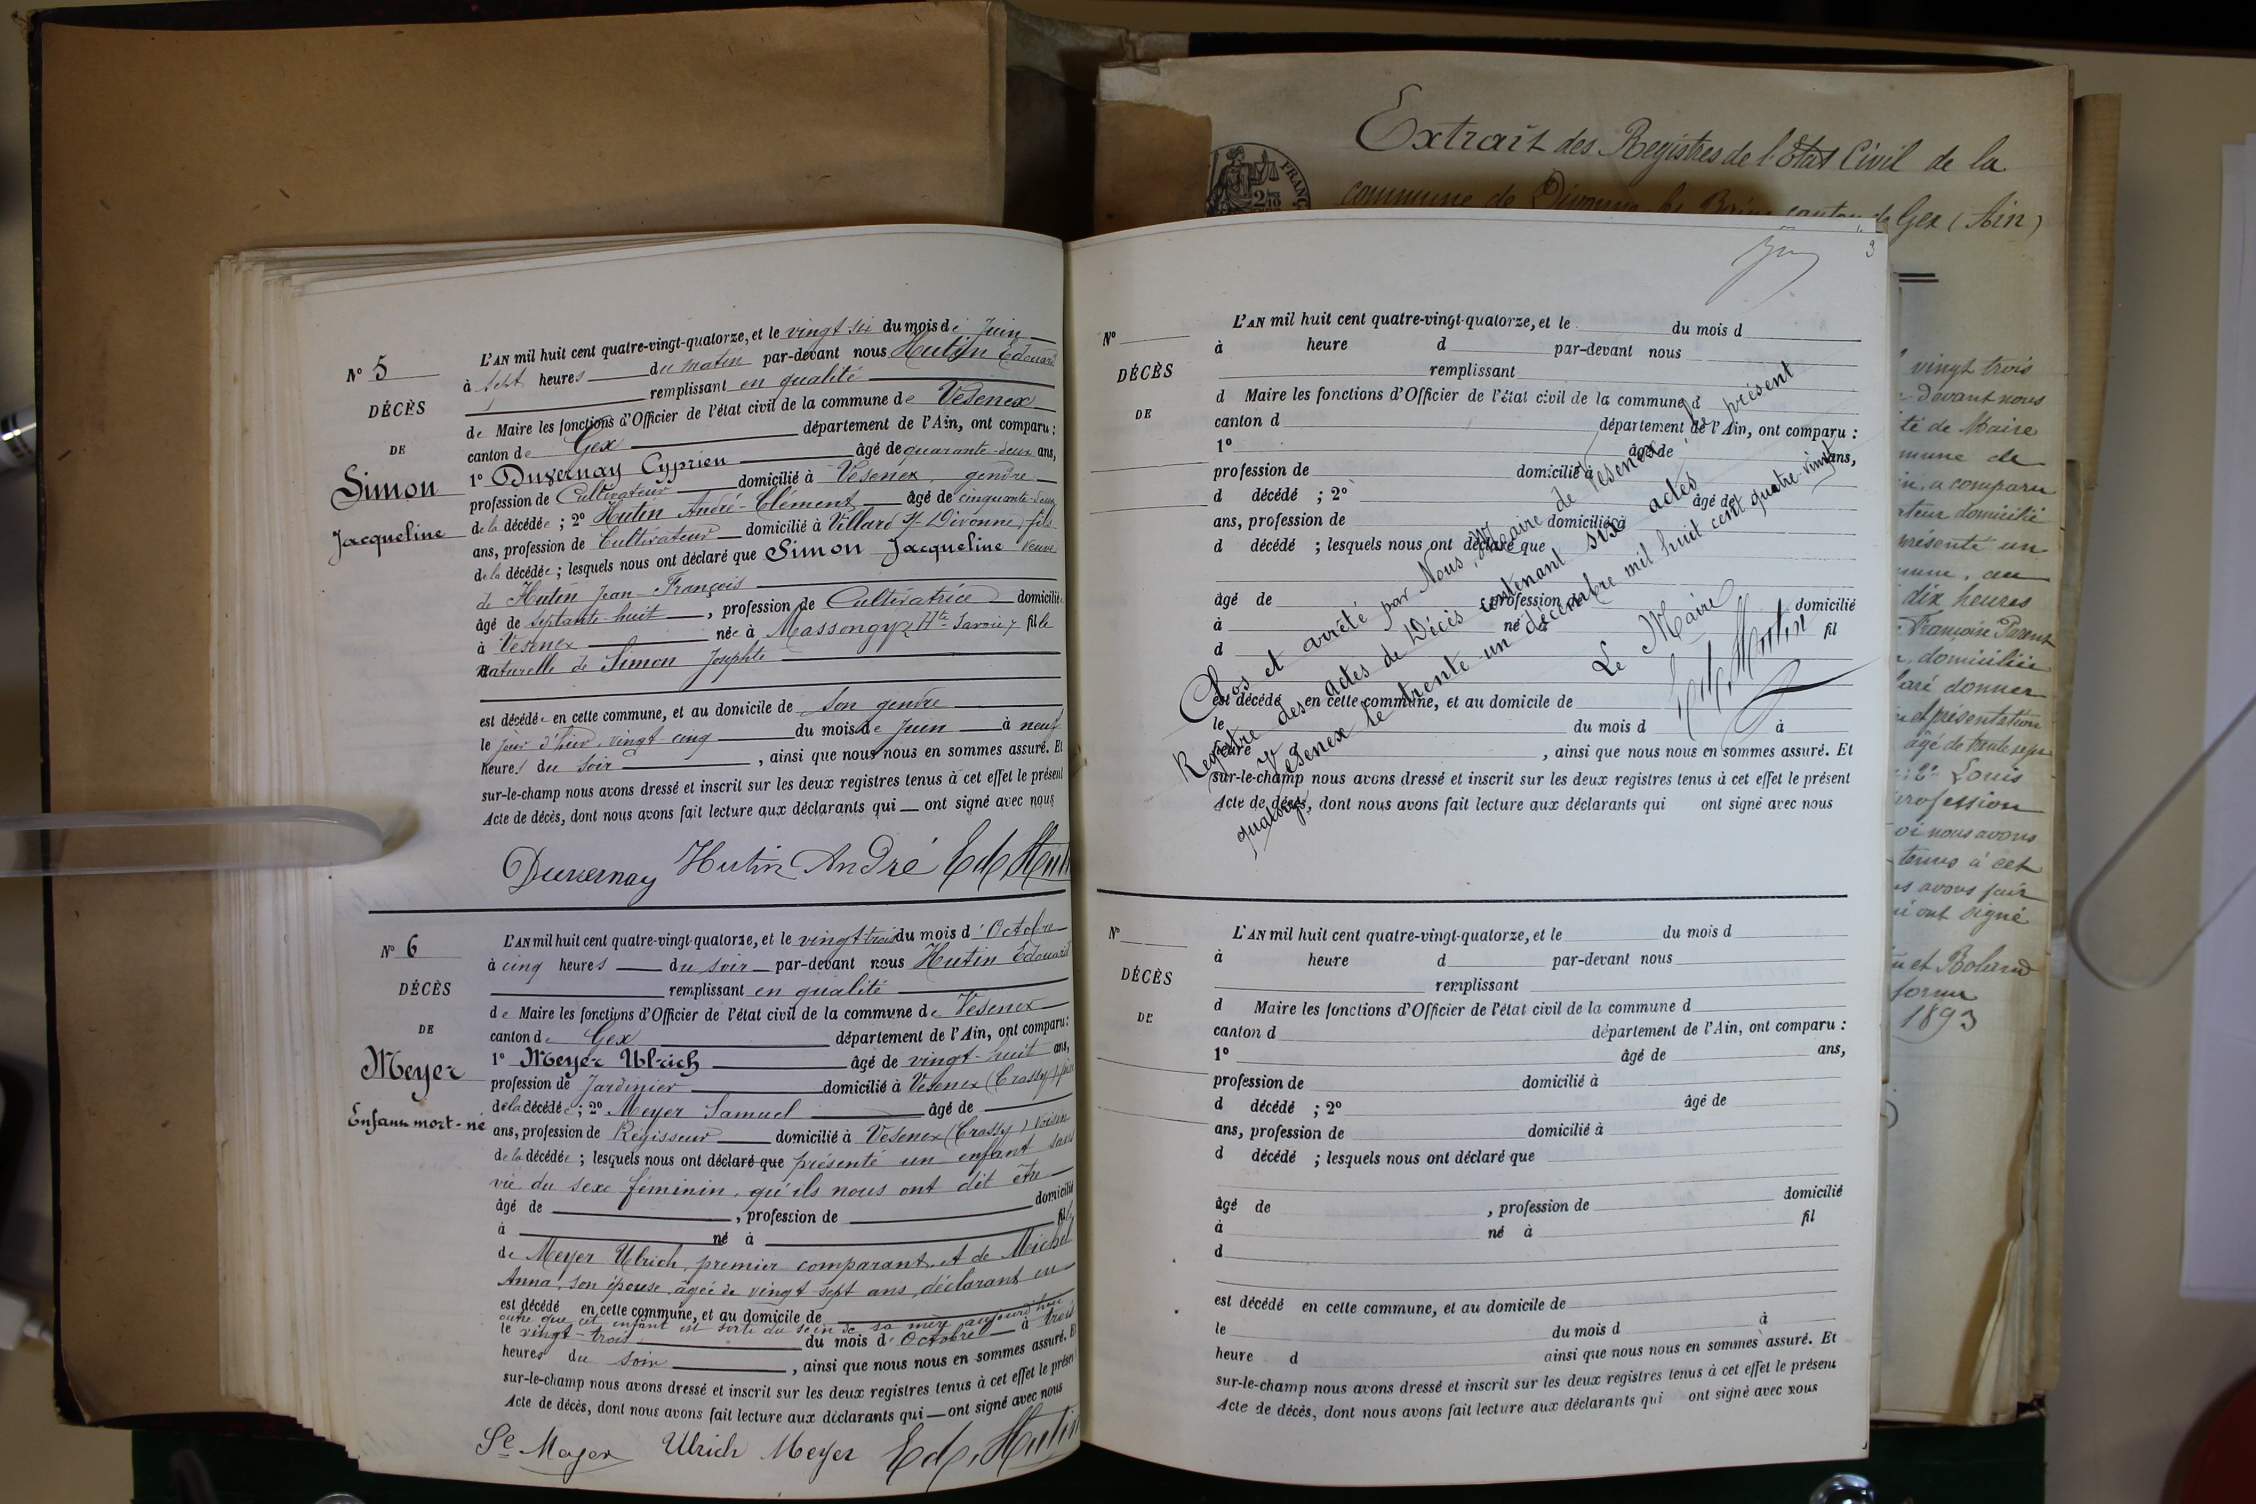 N° 5
DÉCÈS
DE
Simon
Jacqueline
L'AN mil huit cent quatre-vingt-quatorze, et le vingt six du mois de Juin
à sept heures du matin par-devant nous Hutin Edouard
remplissant en qualité
de Maire les fonctions d'Officier de l'état civil de la commune de Vesenex
canton de Gex département de l'Ain, ont comparu :
1° Duvernay Cyprien âgé de quarante-deux ans,
profession de Cultivateur domicilié à Vesenex, gendre
de la décédée ; 2° Hutin André-Clément âgé de cinquante-deux
ans, profession de Cultivateur domicilié à Villard s/- Divonne, fils
de la décédée ; lesquels nous ont déclaré que Simon Jacqueline veuve
de Hutin Jean François
âgé de septante-huit, profession de Cultivatrice domiciliée
à Vesenex née à Massongy, Hte Savoie, fille
naturelle de Simon Josephte
est décédée en cette commune, et au domicile de son gendre
le jour d'hier, vingt cinq du mois de Juin à neuf
heures du soir, ainsi que nous nous en sommes assuré. Et
sur-le-champ nous avons dressé et inscrit sur les deux registres tenus à cet effet le présent
Acte de décès, dont nous avons fait lecture aux déclarants qui ont signé avec nous
Duvernay Hutin André Ed. Hutin
N° 6
DÉCÈS
DE
Meyer
Enfant mort-né
L'AN mil huit cent quatre-vingt-quatorze, et le vingt trois du mois d'Octobre
à cinq heures du soir par-devant nous Hutin Edouard
remplissant en qualité
de Maire les fonctions d'Officier de l'état civil de la commune de Vesenex
canton de Gex département de l'Ain, ont comparu :
1° Meyer Ulrich âgé de vingt-huit ans,
profession de Jardinier domicilié à Vesenex (Crassy) père
de la décédée ; 2° Meyer Samuel âgé de
ans, profession de Régisseur domicilié à Vesenex (Crassy) voisin
de la décédée ; lesquels nous ont déclaré que présenté un enfant sans
vie du sexe féminin, qu'ils nous ont dit être
âgé de , profession de domicilié
à né à fille
de Meyer Ulrich, premier comparant, et de Michel
Anna, son épouse, âgée de vingt sept ans, déclarant en
est décédé en cette commune, et au domicile de
outre que cet enfant est sorti du sein de sa mère aujourd'hui
le vingt-trois du mois d'Octobre à trois
heures du soir, ainsi que nous nous en sommes assuré. Et
sur-le-champ nous avons dressé et inscrit sur les deux registres tenus à cet effet le présent
Acte de décès, dont nous avons fait lecture aux déclarants qui ont signé avec nous
Sl Meyer Ulrich Meyer Ed. Hutin
3
N°
DÉCÈS
DE
L'AN mil huit cent quatre-vingt-quatorze, et le du mois d
à heure d par-devant nous
remplissant
d Maire les fonctions d'Officier de l'état civil de la commune d
canton d département de l'Ain, ont comparu :
1° âgé de ans,
profession de domicilié à
d décédé ; 2° âgé de
ans, profession de domicilié à
d décédé ; lesquels nous ont déclaré que
âgé de profession d domicilié
à né à fil
d
est décédé en cette commune, et au domicile de
le du mois d à
heure , ainsi que nous nous en sommes assuré. Et
sur-le-champ nous avons dressé et inscrit sur les deux registres tenus à cet effet le présent
Acte de décès, dont nous avons fait lecture aux déclarants qui ont signé avec nous
Clos et arrêté par Nous, Maire de Vesenex, le présent
Registre des actes de Décès contenant six actes
Vesenex le trente un décembre mil huit cent quatre-vingt
quatorze
Le Maire
Ed. Hutin
N°
DÉCÈS
DE
L'AN mil huit cent quatre-vingt-quatorze, et le du mois d
à heure d par-devant nous
remplissant
d Maire les fonctions d'Officier de l'état civil de la commune d
canton d département de l'Ain, ont comparu :
1° âgé de ans,
profession de domicilié à
d décédé ; 2° âgé de
ans, profession de domicilié à
d décédé ; lesquels nous ont déclaré que
âgé de , profession de domicilié
à né à fil
d
est décédé en cette commune, et au domicile de
le du mois d à
heure d ainsi que nous nous en sommes assuré. Et
sur-le-champ nous avons dressé et inscrit sur les deux registres tenus à cet effet le présent
Acte de décès, dont nous avons fait lecture aux déclarants qui ont signé avec nous
Extrait des Registres de l'Etat Civil de la
commune de Divonne les Bains canton de Gex (Ain)
FRANÇ
vingt trois
devant nous
té de Maire
mune de
a comparu
ateur domicilié
présenté un
au
dix heures
Françoise Parent
domiciliée
laré donner
et présentation
âgé de trente sept
Louis
profession
oi nous avons
tenus à cet
s avons fait
ont signé
et Boland
1893